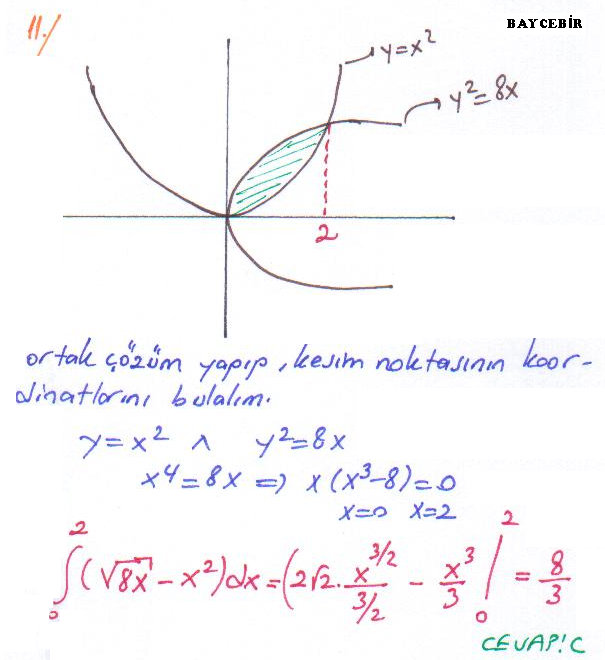 11./
BAYCEBİR
y=x²
y²=8x
2
ortak çözüm yapıp, kesim noktasının koor-
dinatlarını bulalım.
y=x² ∧ y²=8x
x⁴=8x ⇒ x(x³-8)=0
x=0 x=2
∫₀²(√8x - x²)dx = (2√2 · x^(3/2)/(3/2) - x³/3 |₀² = 8/3
CEVAP: C